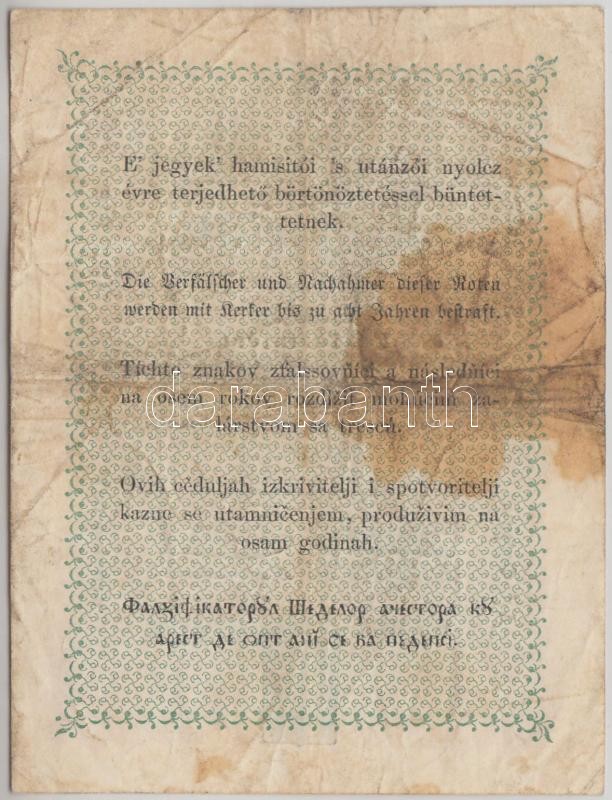 E' jegyek' hamisitói 's utánzói nyolcz
évre terjedhető börtönöztetéssel büntet-
tetnek.
Die Verfälscher und Nachahmer dieser Noten
werden mit Kerker bis zu acht Jahren bestraft.
Tíchto znakov zfalssovňíci a následníci
na osem rokov
za-
lárstvom sa trescú.
Ovih cěduljah izkrivitelji i spotvoritelji
kazne se utamničenjem, produživim na
osam godinah.
Фалꙁіфікаторꙋл Шеделор ачестора кꙋ
арест де опт анй се ва педепсі.
darabanth